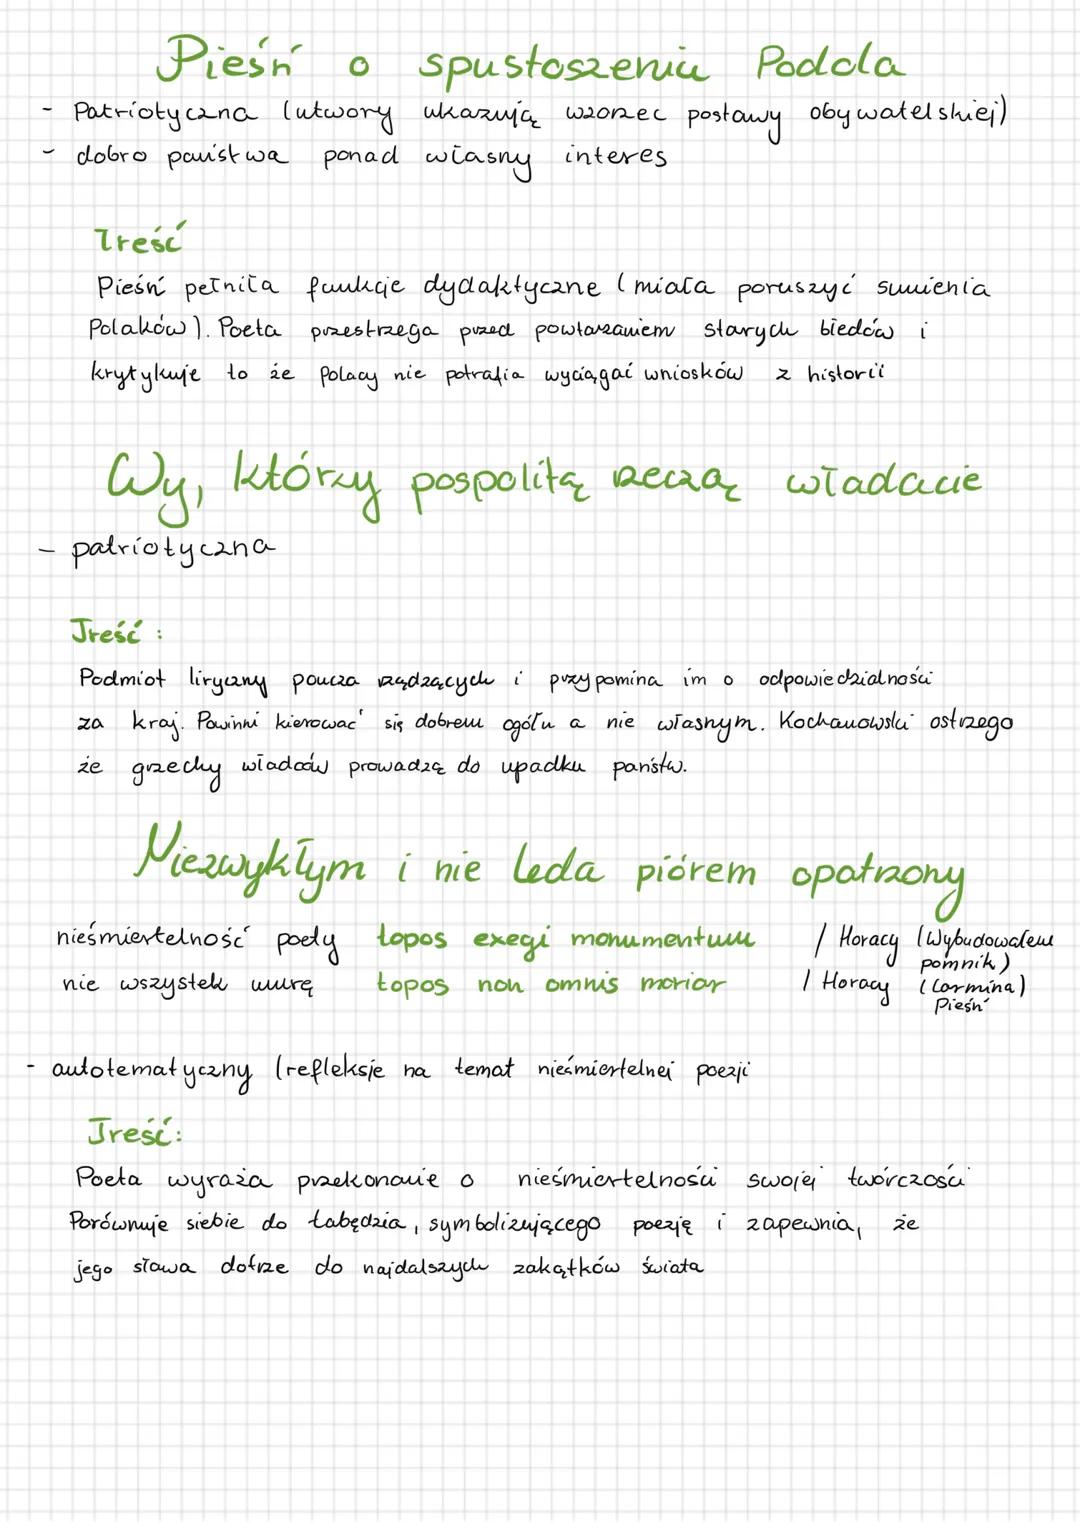 Pieśń o spustoszeniu Podola
- Patriotyczna (utwory ukazują wzorzec postawy obywatelskiej)
- dobro państwa ponad własny interes
Treść
Pieśń pełniła funkcje dydaktyczne (miała poruszyć sumienia
Polaków). Poeta przestrzega przed powtarzaniem starych błedów i
krytykuje to że Polacy nie potrafia wyciągać wniosków z historii
Wy, którzy pospolitą rzeczą władacie
- patriotyczna
Treść :
Podmiot liryczny poucza rządzących i przypomina im o odpowiedzialności
za kraj. Powinni kierować się dobrem ogółu a nie własnym. Kochanowski ostrzego
że grzechy władców prowadzą do upadku państw.
Niezwykłym i nie leda piórem opatrzony
nieśmiertelność poety topos exegi monumentum / Horacy (Wybudowałem
pomnik)
nie wszystek umrę topos non omnis moriar / Horacy (Carmina)
Pieśń
- autotematyczny (refleksje na temat nieśmiertelnei poezji
Treść:
Poeta wyraża przekonanie o nieśmiertelności swojej twórczości
Porównuje siebie do łabędzia, symbolizującego poezję i zapewnia, że
jego słowa dotrze do najdalszych zakątków świata